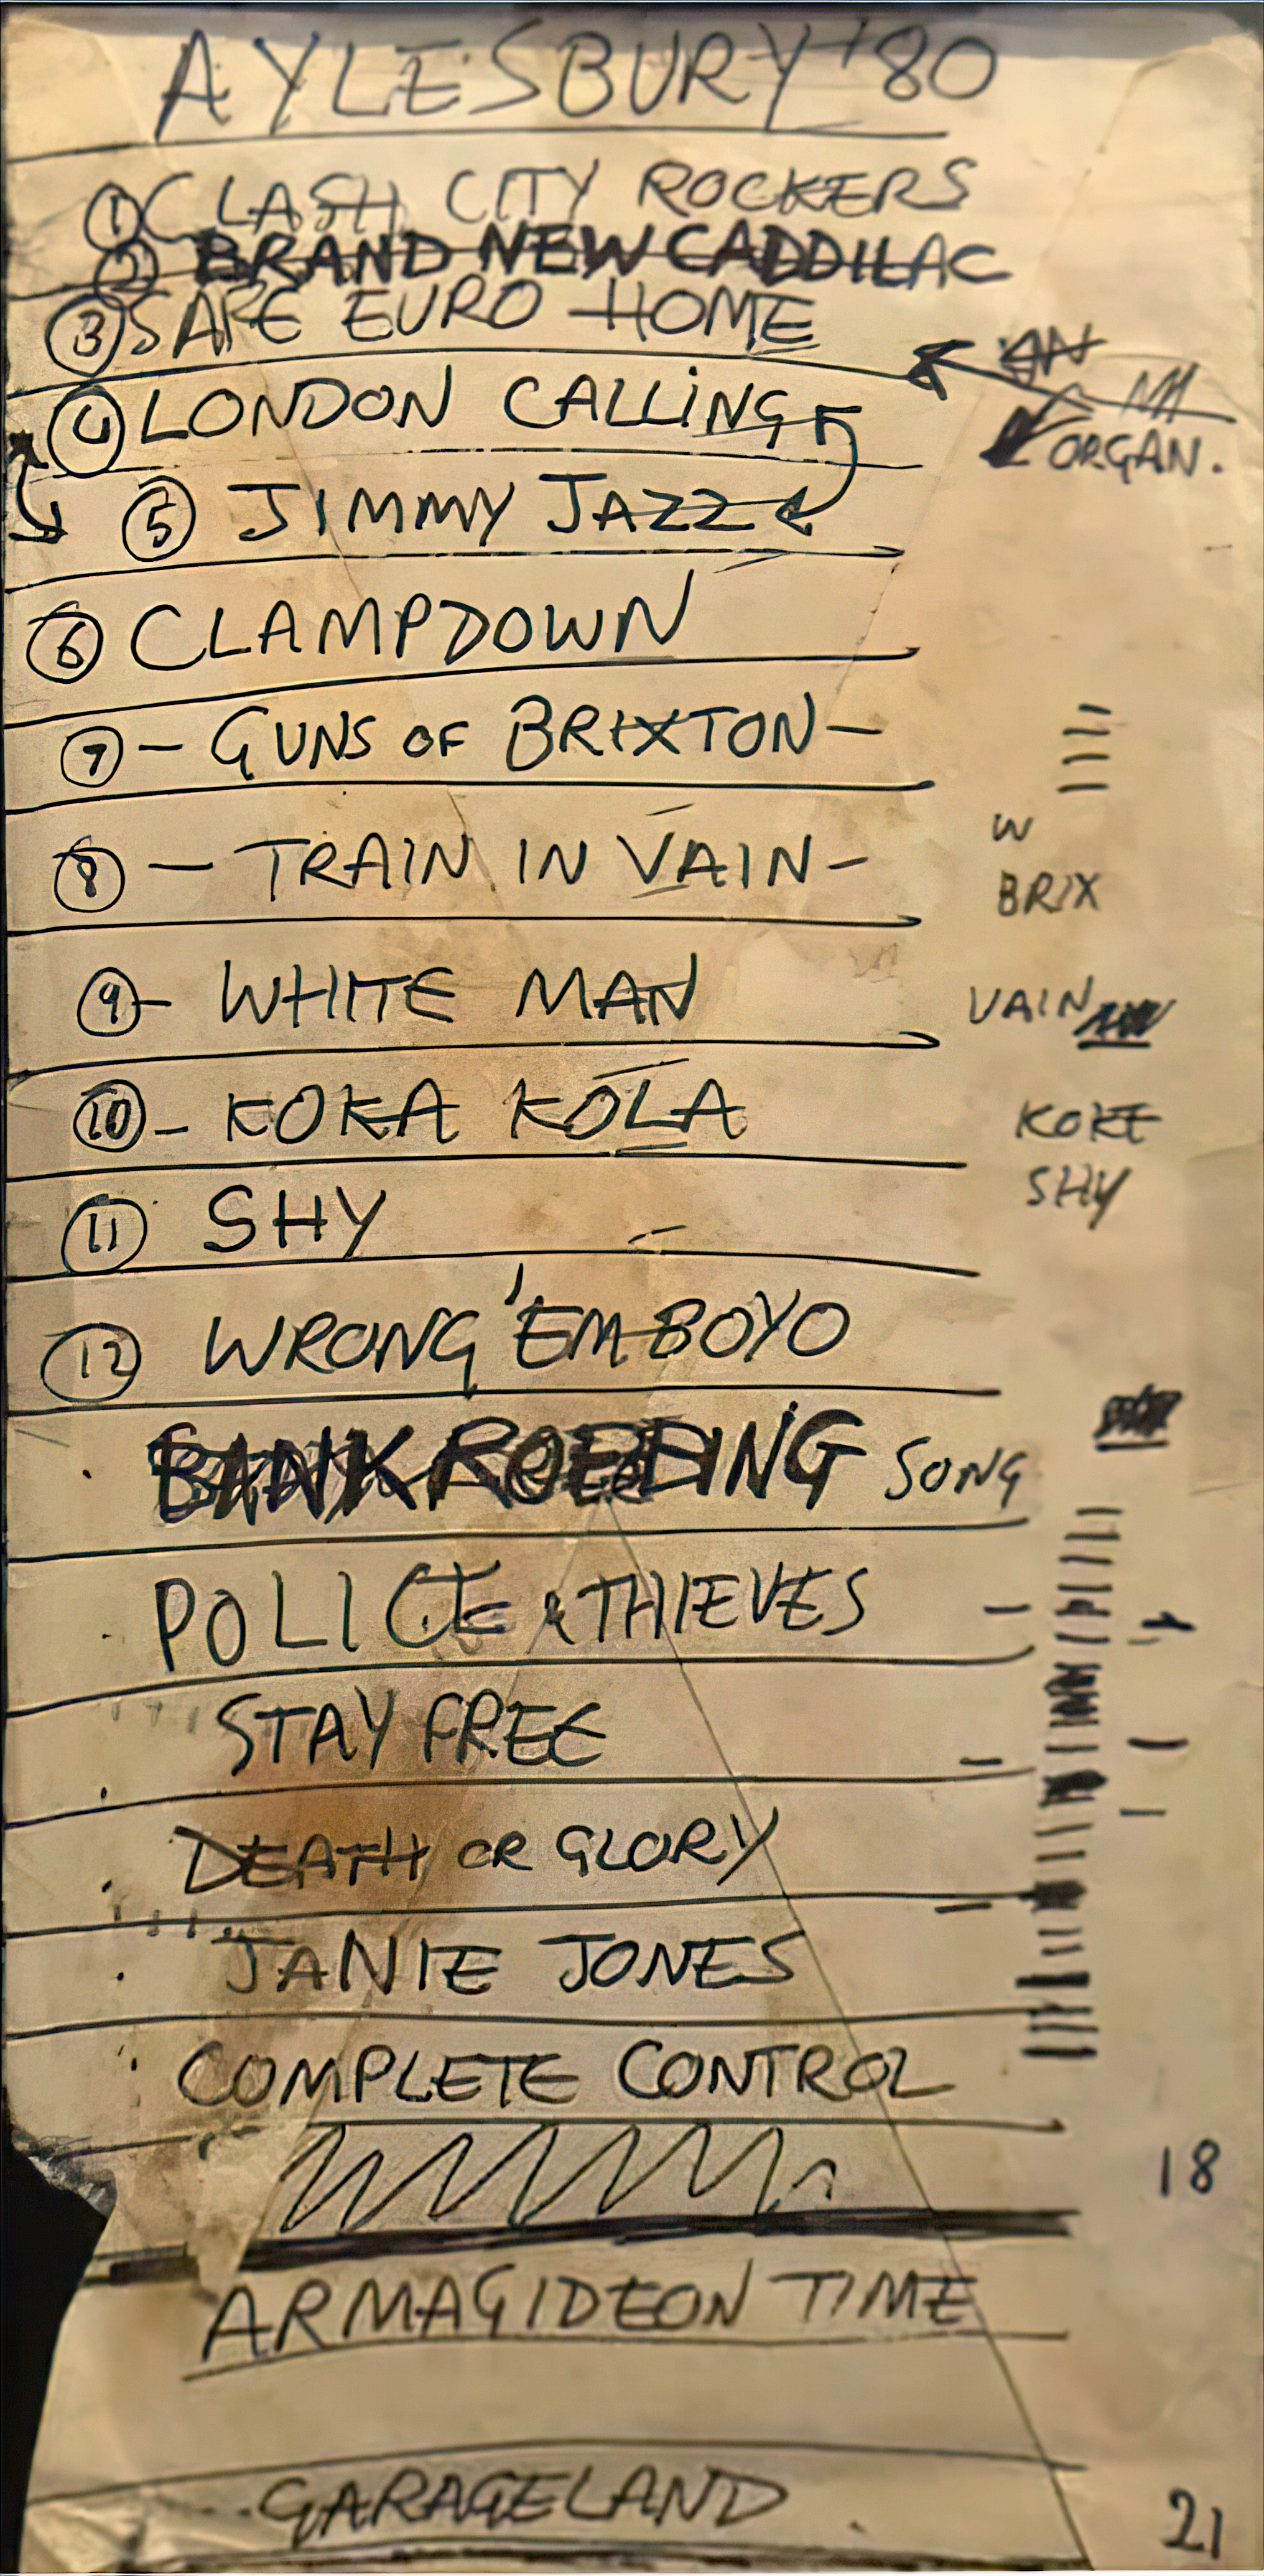 AYLESBURY '80
① CLASH CITY ROCKERS
② BRAND NEW CADDILAC
③ SAFE EURO HOME
④ LONDON CALLING
ORGAN.
⑤ JIMMY JAZZ
⑥ CLAMPDOWN
⑦ — GUNS OF BRIXTON —
W
⑧ — TRAIN IN VAIN —
BRIX
⑨ — WHITE MAN
VAIN
⑩ — KOKA KOLA
KOKE
⑪ SHY
SHY
⑫ WRONG 'EM BOYO
BANK ROBBING SONG
POLICE & THIEVES —
STAY FREE —
DEATH OR GLORY
JANIE JONES
COMPLETE CONTROL
18
ARMAGIDEON TIME
GARAGELAND
21